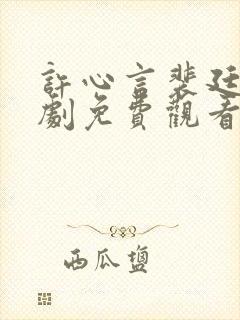 許心言裴廷
劇免費觀看
西瓜鹽